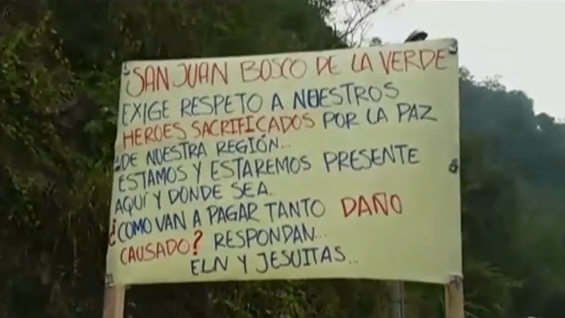 SAN JUAN BOSCO DE LA VERDE
EXIGE RESPETO A NUESTROS
HEROES SACRIFICADOS POR LA PAZ
DE NUESTRA REGIÓN...
ESTAMOS Y ESTAREMOS PRESENTE
AQUÍ Y DONDE SEA.
¿COMO VAN A PAGAR TANTO DAÑO
CAUSADO? RESPONDAN...
ELN Y JESUITAS...